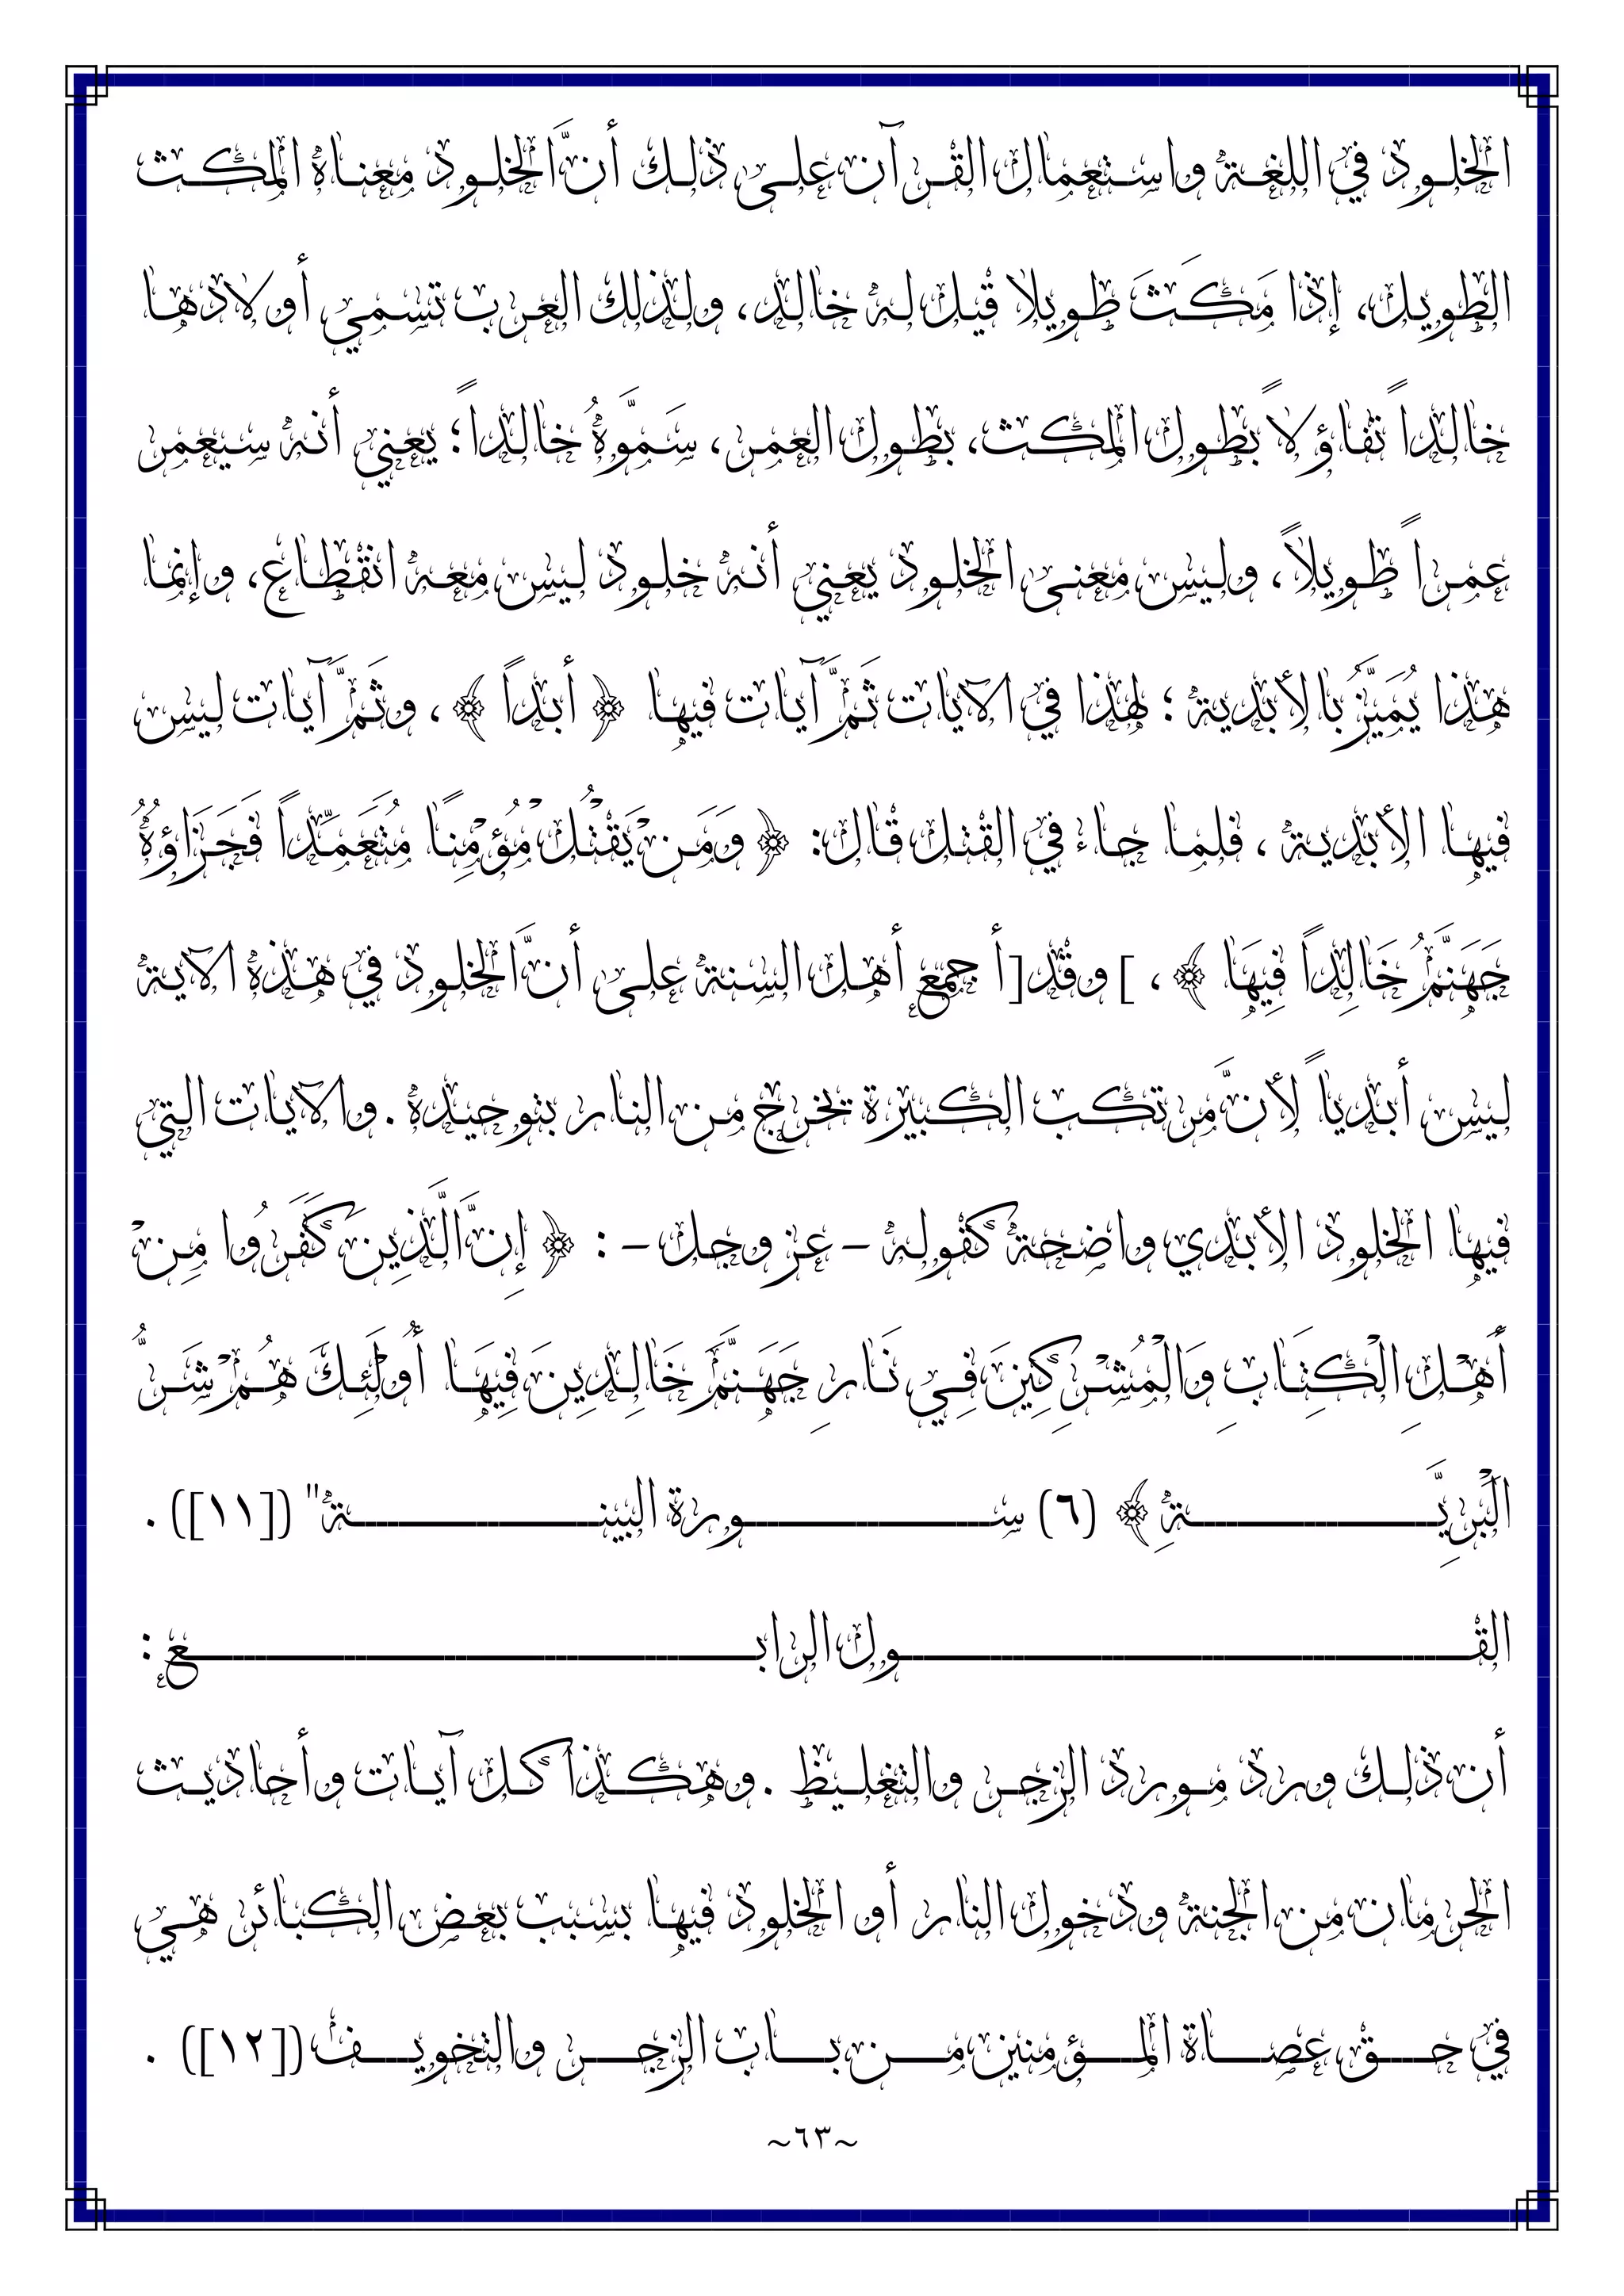 الخلود في اللغة واستعمال القرآن على ذلك أنَّ الخلود معناه المكث
الطويل، إذا مَكَثَ طويلا قيل له خالد، ولذلك العرب تسمي أولادها
خالداً تفاؤلاً بطول المكث، بطول العمر، سَمَّوْهُ خالداً؛ يعني أنه سيعمر
عمراً طويلاً، وليس معنى الخلود يعني أنه خلود ليس معه انقطاع، وإنما
هذا يُمَيَّزُ بالأبدية ؛ لهذا في الآيات ثَمَّ آيات فيها ﴿ أبداً ﴾ ، وثَمَّ آيات ليس
فيها الأبدية ، فلما جاء في القتل قال: ﴿ وَمَن يَقْتُلْ مُؤْمِنًا مُتَعَمِّداً فَجَزَاؤُهُ
جَهَنَّمُ خَالِداً فِيهَا ﴾ ، ] وقد[أ جمع أهل السنة على أنَّ الخلود في هذه الآية
ليس أبدياً لأنَّ مرتكب الكبيرة تخرج من النار بتوحيده .والآيات التي
فيها الخلود الأبدي واضحة كقوله -عز وجل- : ﴿ إِنَّ الَّذِينَ كَفَرُوا مِنْ
أَهْلِ الْكِتَابِ وَالْمُشْرِكِينَ فِي نَارِ جَهَنَّمَ خَالِدِينَ فِيهَا أُولَٰئِكَ هُمْ شَرُّ
الْبَرِيَّةِ ﴾ (٦) سورة البينة" ([١١]) .
القول الرابع :
أن ذلك ورد مورد الزجر والتغليظ .وهكذا كل آيات وأحاديث
الحرمان من الجنة ودخول النار أو الخلود فيها بسبب بعض الكبائر هي
في حق عصاة المؤمنين من باب الزجر والتخويف([١٢]) .
~٦٣~